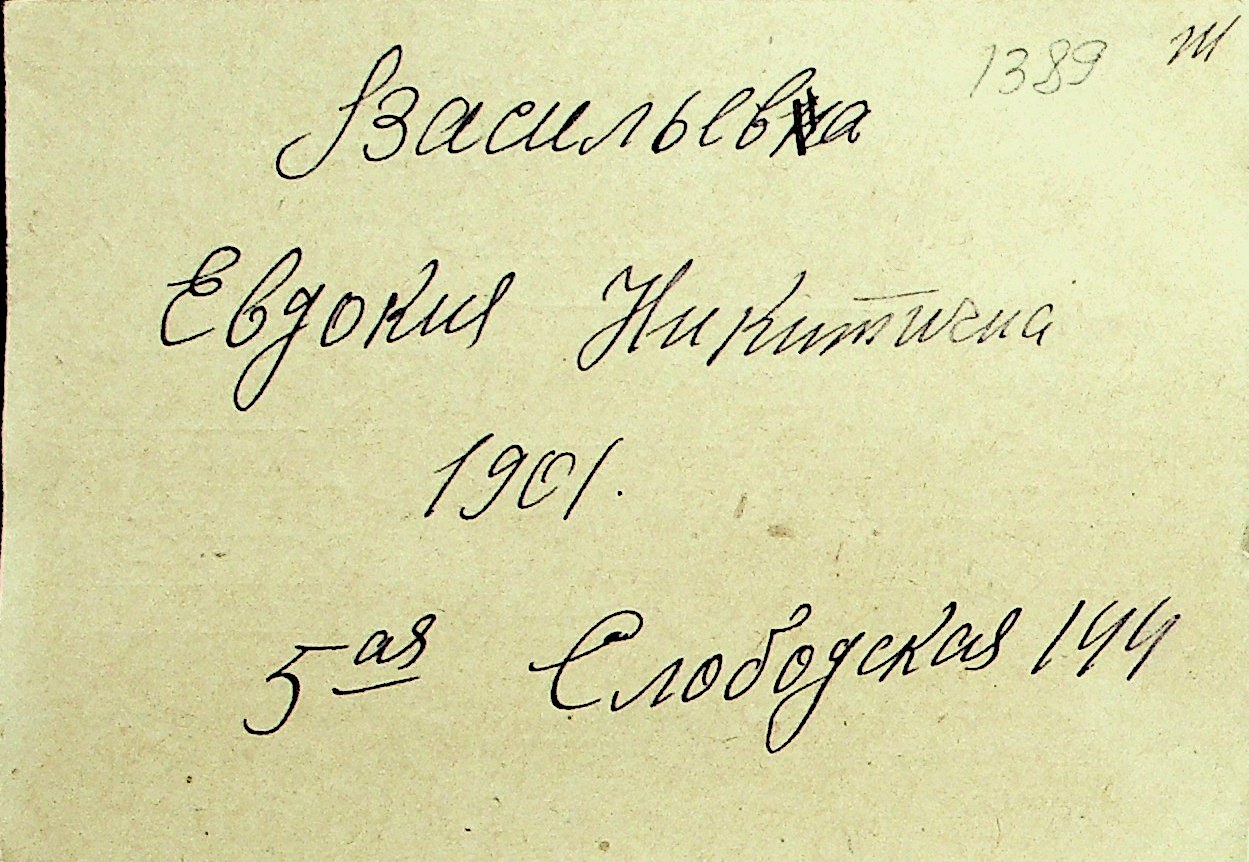 1389
Васильева
Евдокия Никитична
1901.
5ая Слободская 144